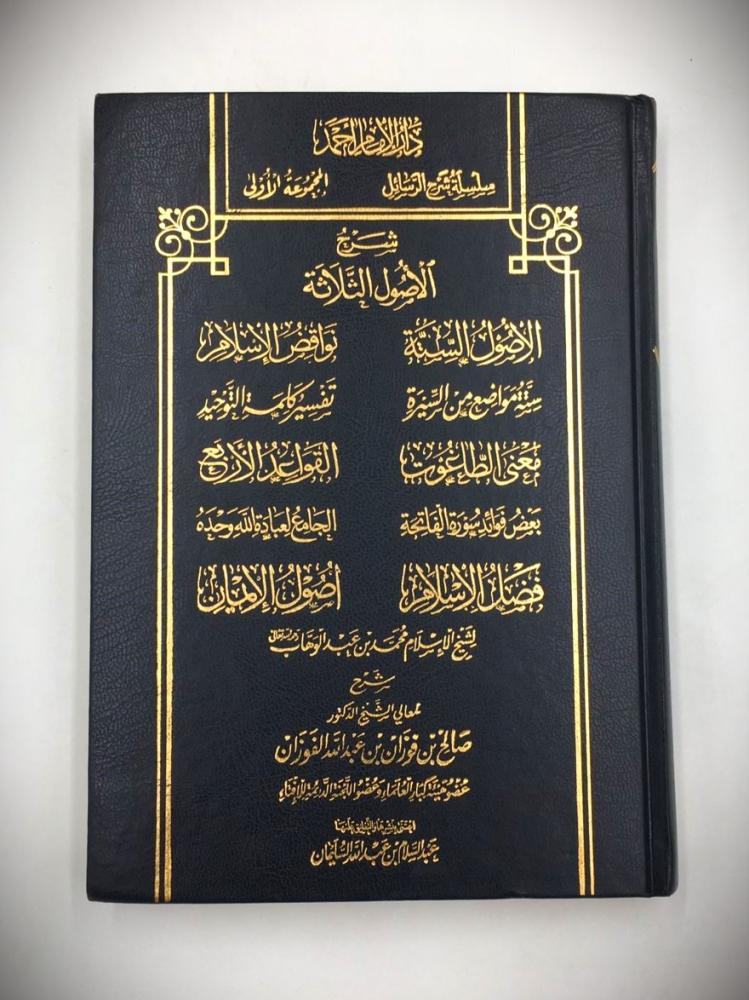 دار الإمام أحمد
سلسلة شرح الرسائل المجموعة الأولى
شرح
الأصول الثلاثة
الأصول الستة نواقض الإسلام
ستة مواضع من السيرة تفسير كلمة التوحيد
معنى الطاغوت القواعد الأربع
بعض فوائد سورة الفاتحة الجامع لعبادة الله وحده
فضل الإسلام أصول الإيمان
لشيخ الإسلام محمد بن عبد الوهاب رحمه الله تعالى
شرح
لمعالي الشيخ الدكتور
صالح بن فوزان بن عبد الله الفوزان
عضو هيئة كبار العلماء وعضو اللجنة الدائمة للإفتاء
اعتنى بنشرها والتعليق عليها
عبد السلام بن عبد الله السليمان